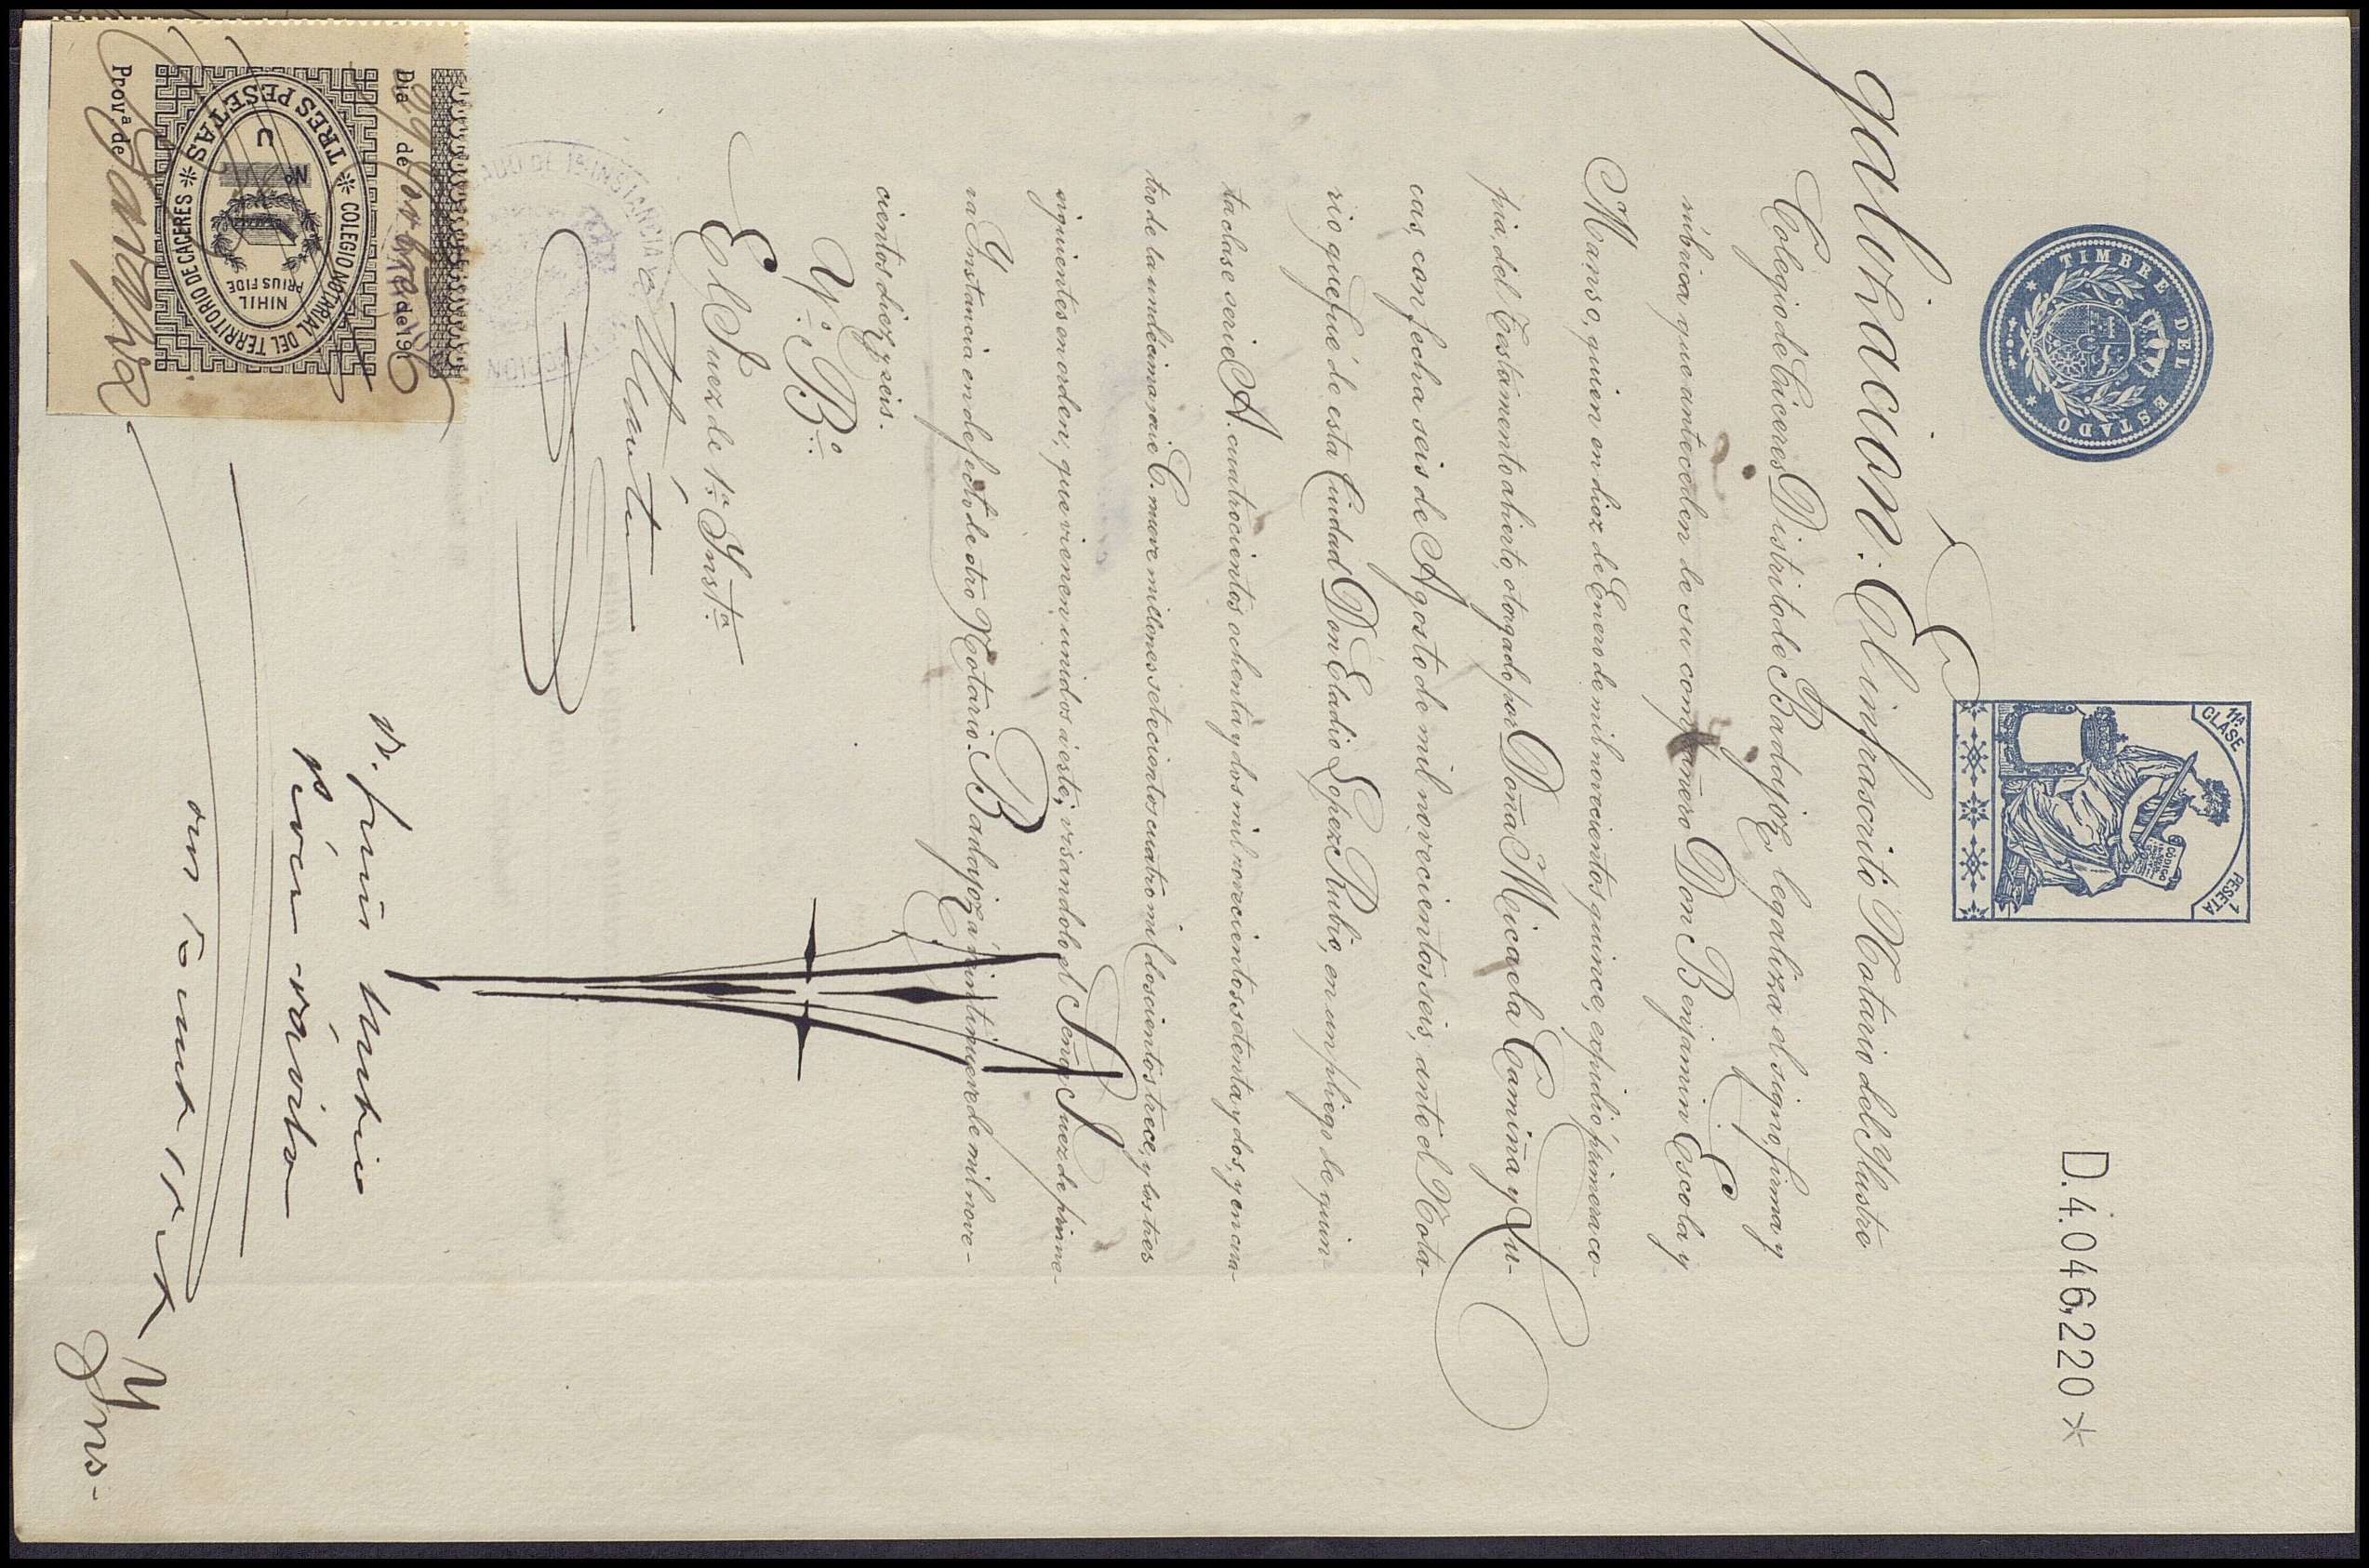 TIMBRE DEL ESTADO
11ª CLASE
1 PESETA
CODIGO
D.4.046,220 *
galización. El infrascrito Notario del Ilustre
Colegio de Cáceres Distrito de Badajoz, legaliza el signo, firma y
rúbrica que anteceden de su compañero Don Benjamin Escola y
Manso, quien en diez de Enero de mil novecientos quince, expidió primera co-
pia, del testamento abierto, otorgado por Doña Micaela Camiña y Lu-
cas, con fecha seis de Agosto de mil novecientos seis, ante el Nota-
rio que fué de esta Ciudad Don Eladio Lopez Rubio, en un pliego de quin-
ta clase serie A. cuatrocientos ochenta y dos mil novecientos setenta y dos, y en cua-
tro de la undécima, serie C. nueve millones setecientos cuatro mil doscientos trece, y los tres
siguientes en orden, que vienen unidos a este; visandolo el Señor Juez de prime-
ra Instancia en defecto de otro Notario. Badajoz a veintinueve de mil nove-
cientos diez y seis.
Vº Bº
El Juez de 1ª Instª
JUZGADO DE 1ª INSTANCIA
Día 29 de de 1916
COLEGIO NOTARIAL DEL TERRITORIO DE CACERES * TRES PESETAS *
NIHIL PRIUS FIDE
Nº
Provª de Badajoz